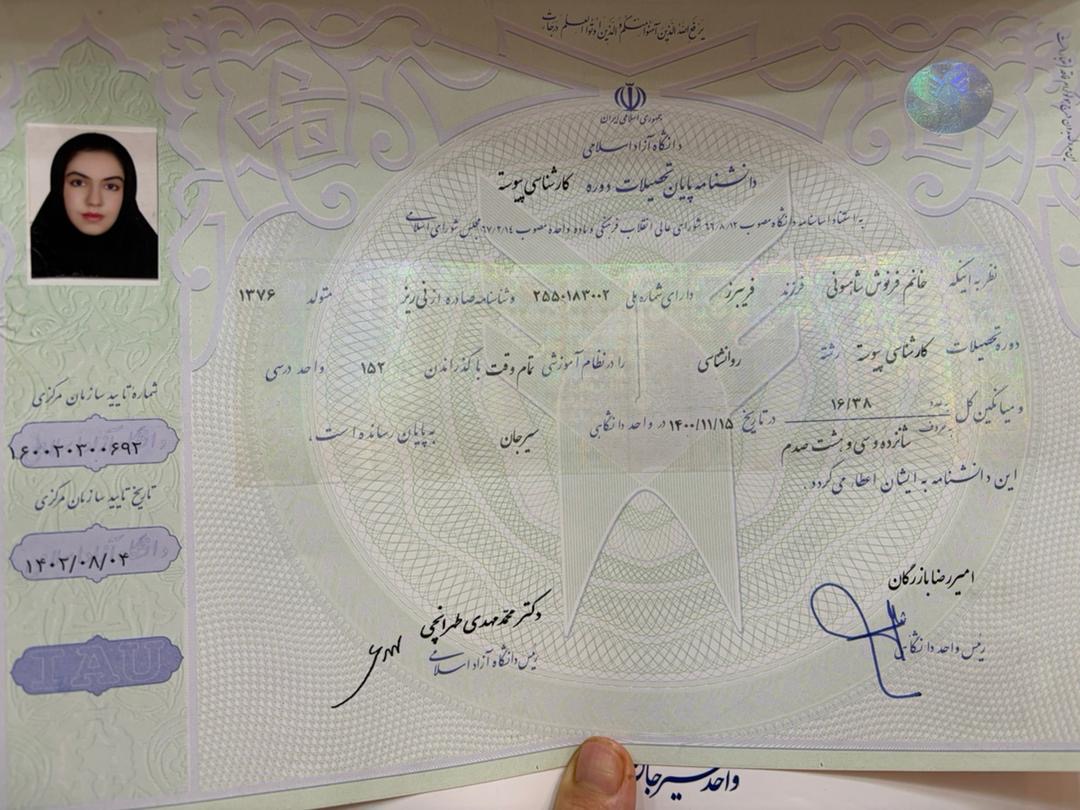 یرفع الله الذین آمنوا منکم و الذین اوتوا العلم درجات
جمهوری اسلامی ایران
دانشگاه آزاد اسلامی
دانشنامه پایان تحصیلات دوره کارشناسی پیوسته
به استناد اساسنامه دانشگاه مصوب ۶۶/۸/۱۲ شورای عالی انقلاب فرهنگی و ماده واحده مصوب ۶۷/۲/۱۴ مجلس شورای اسلامی
نظر به اینکه خانم فرنوش شاهسونی فرزند فریبرز دارای شماره ملی ۲۵۵۰۱۸۳۰۰۲ و شناسنامه صادره از نی ریز متولد ۱۳۷۶
دوره تحصیلات کارشناسی پیوسته رشته روانشناسی را در نظام آموزشی تمام وقت با گذراندن ۱۵۲ واحد درسی
و میانگین کل به عدد ۱۶/۳۸ به حروف شانزده و سی و هشت صدم در تاریخ ۱۴۰۰/۱۱/۱۵ در واحد دانشگاهی سیرجان به پایان رسانده است.
این دانشنامه به ایشان اعطا می گردد.
امیررضا بازرگان
رئیس واحد دانشگاهی
دکتر محمد مهدی طهرانچی
رئیس دانشگاه آزاد اسلامی
شماره تایید سازمان مرکزی
۱۶۰۰۲۰۲۰۰۶۹۲
تاریخ تایید سازمان مرکزی
۱۴۰۲/۰۸/۰۴
IAU
واحد سیرجان